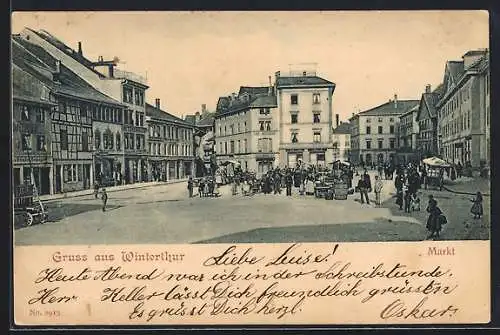 Gruss aus Winterthur
Markt
Liebe Luise!
Heute Abend war ich in der Schreibstunde.
Herr Keller lässt Dich freundlich grüssen
Es grüsst Dich herzl. Oskar.
No. 2913